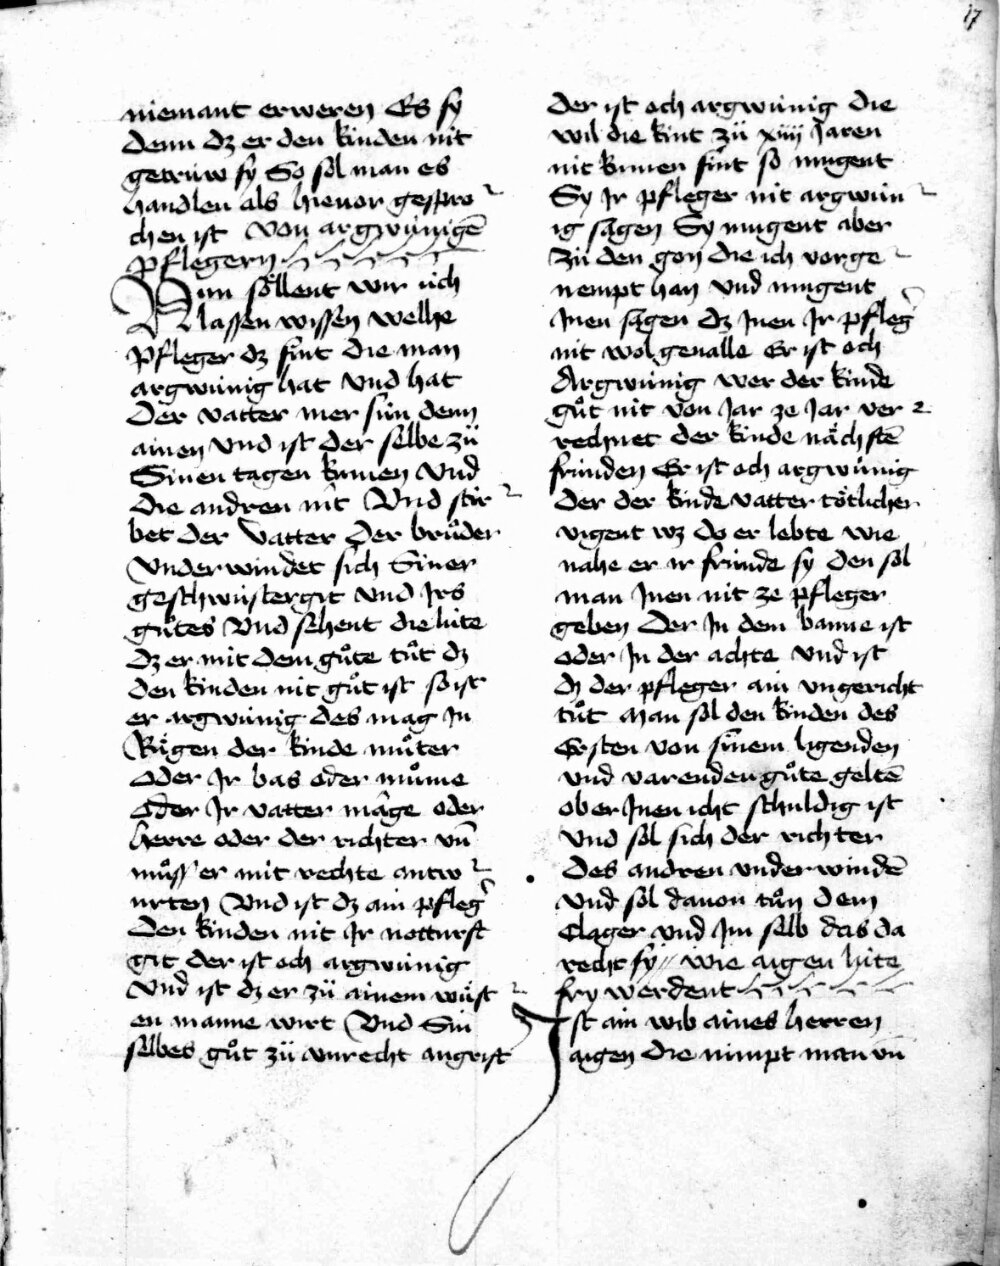 17
niemant erweren Es sy
denn dz er den kinden nit
getrúw sy So sol man es
handlen als hieuor gespro
chen ist Von argwúnigē
pflegern
Nun soͤllent wir úch
lassen wissen welhe
pfleger dz sint die man
argwúnig hat Vnd hat
Der vatter mer sún denn
ainen Vnd ist der selbe zuͤ
Sinen tagen kumen Vnd
die andren nit Vnd stir
bet der Vatter Der bruͦder
Vnderwindet sich Siner
geschwústergit Vnd Irs
guͦtes Vnd sehent die lúte
dz er mit dem guͦte tuͦt dz
den kinden nit guͦt ist so ist
er argwúnig des mag In
Ruͤgen der kinde muͦter
oder Ir bas oder muͦme
Oder Ir vatter mage oder
herre oder der richter vn̄
muͦss er mit rechte antw
urten Vnd ist dz ain pfleg̛
den kinden nit Ir notturft
git der ist och argwúnig
Vnd ist dz er zuͤ ainem wuͤst
en manne wirt Vnd Sin
selbes guͦt zuͤ vnrecht angrift
der ist och argwúnig die
wil die kint zuͤ xiiij Jaren
nit kumen sint so mugent
Sy Ir pfleger nit argwún
ig sagen Sy mugent aber
zuͤ den gon die ich vorge
nempt han Vnd mugent
Inen sagen dz Inen Ir pfleg̛
nit wol geualle Er ist och
Argwúnig wer der kinde
guͦt nit von Jar ze Jar ver
rechnet der kinde naͤchstē
frúnden Er ist och argwúnig
der der kinde vatter toͤtlicher
vigent wz do er lebte wie
nahe er ir frúnde sy den sol
man Inen nit ze pfleger
geben Der In dem banne ist
oder In der achte Vnd ist
dz der pfleger ain vngericht
tuͦt Man sol den kinden des
Ersten von sinem ligenden
vnd varenden guͦte geltē
ober Inen icht schuldig ist
Vnd sol sich der richter
Des andren vnderwindē
Vnd sol dauon tuͦn dem
Clager vnd Im selb das da
recht sy // Wie aigen lúte
fry werdent
Ist ain wib aines herren
aigen die nimpt man vn̄